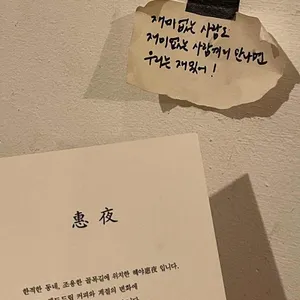 재미없는 사람도
재미없는 사람끼리 만나면
우리는 재밌어!
惠 夜
한적한 동네, 조용한 골목길에 위치한 혜야惠夜 입니다.
커피와 계절의 변화에